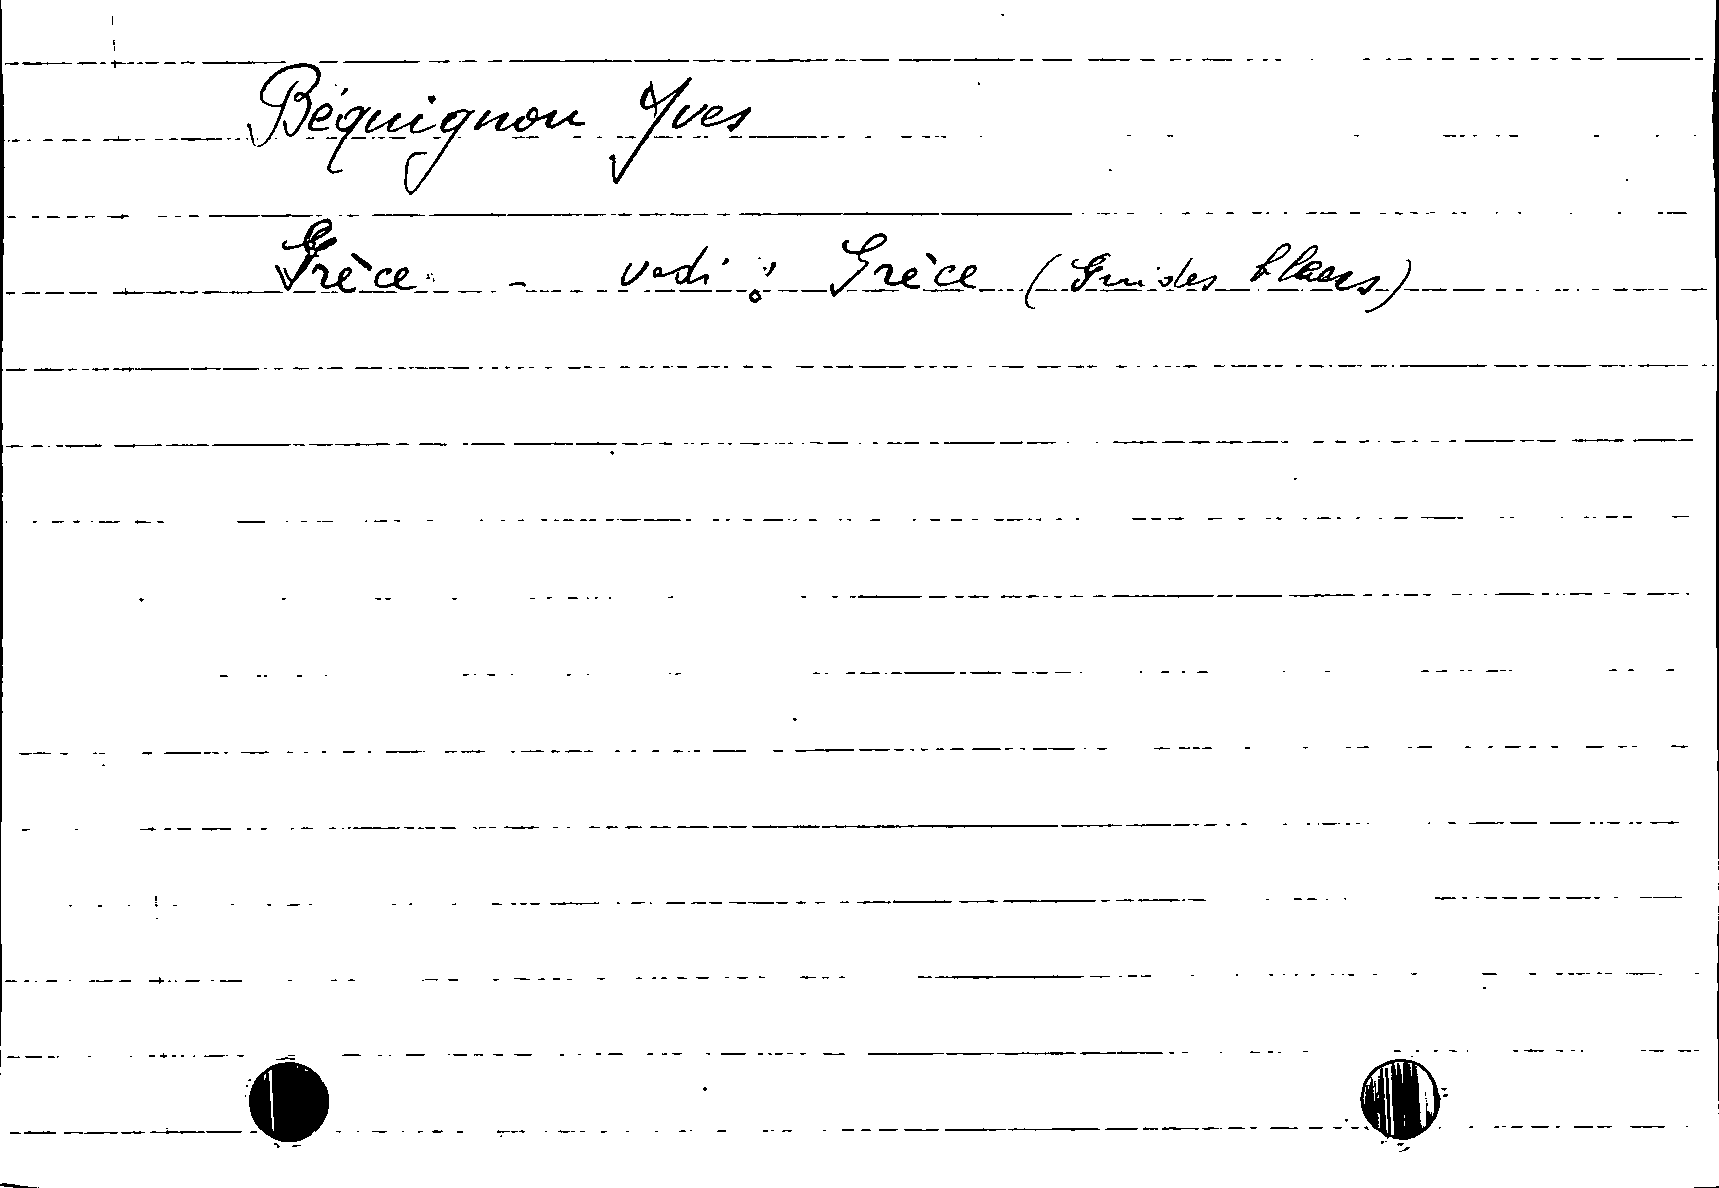 Béquignon Yves
Grèce - vedi : Grèce (Guides bleus)